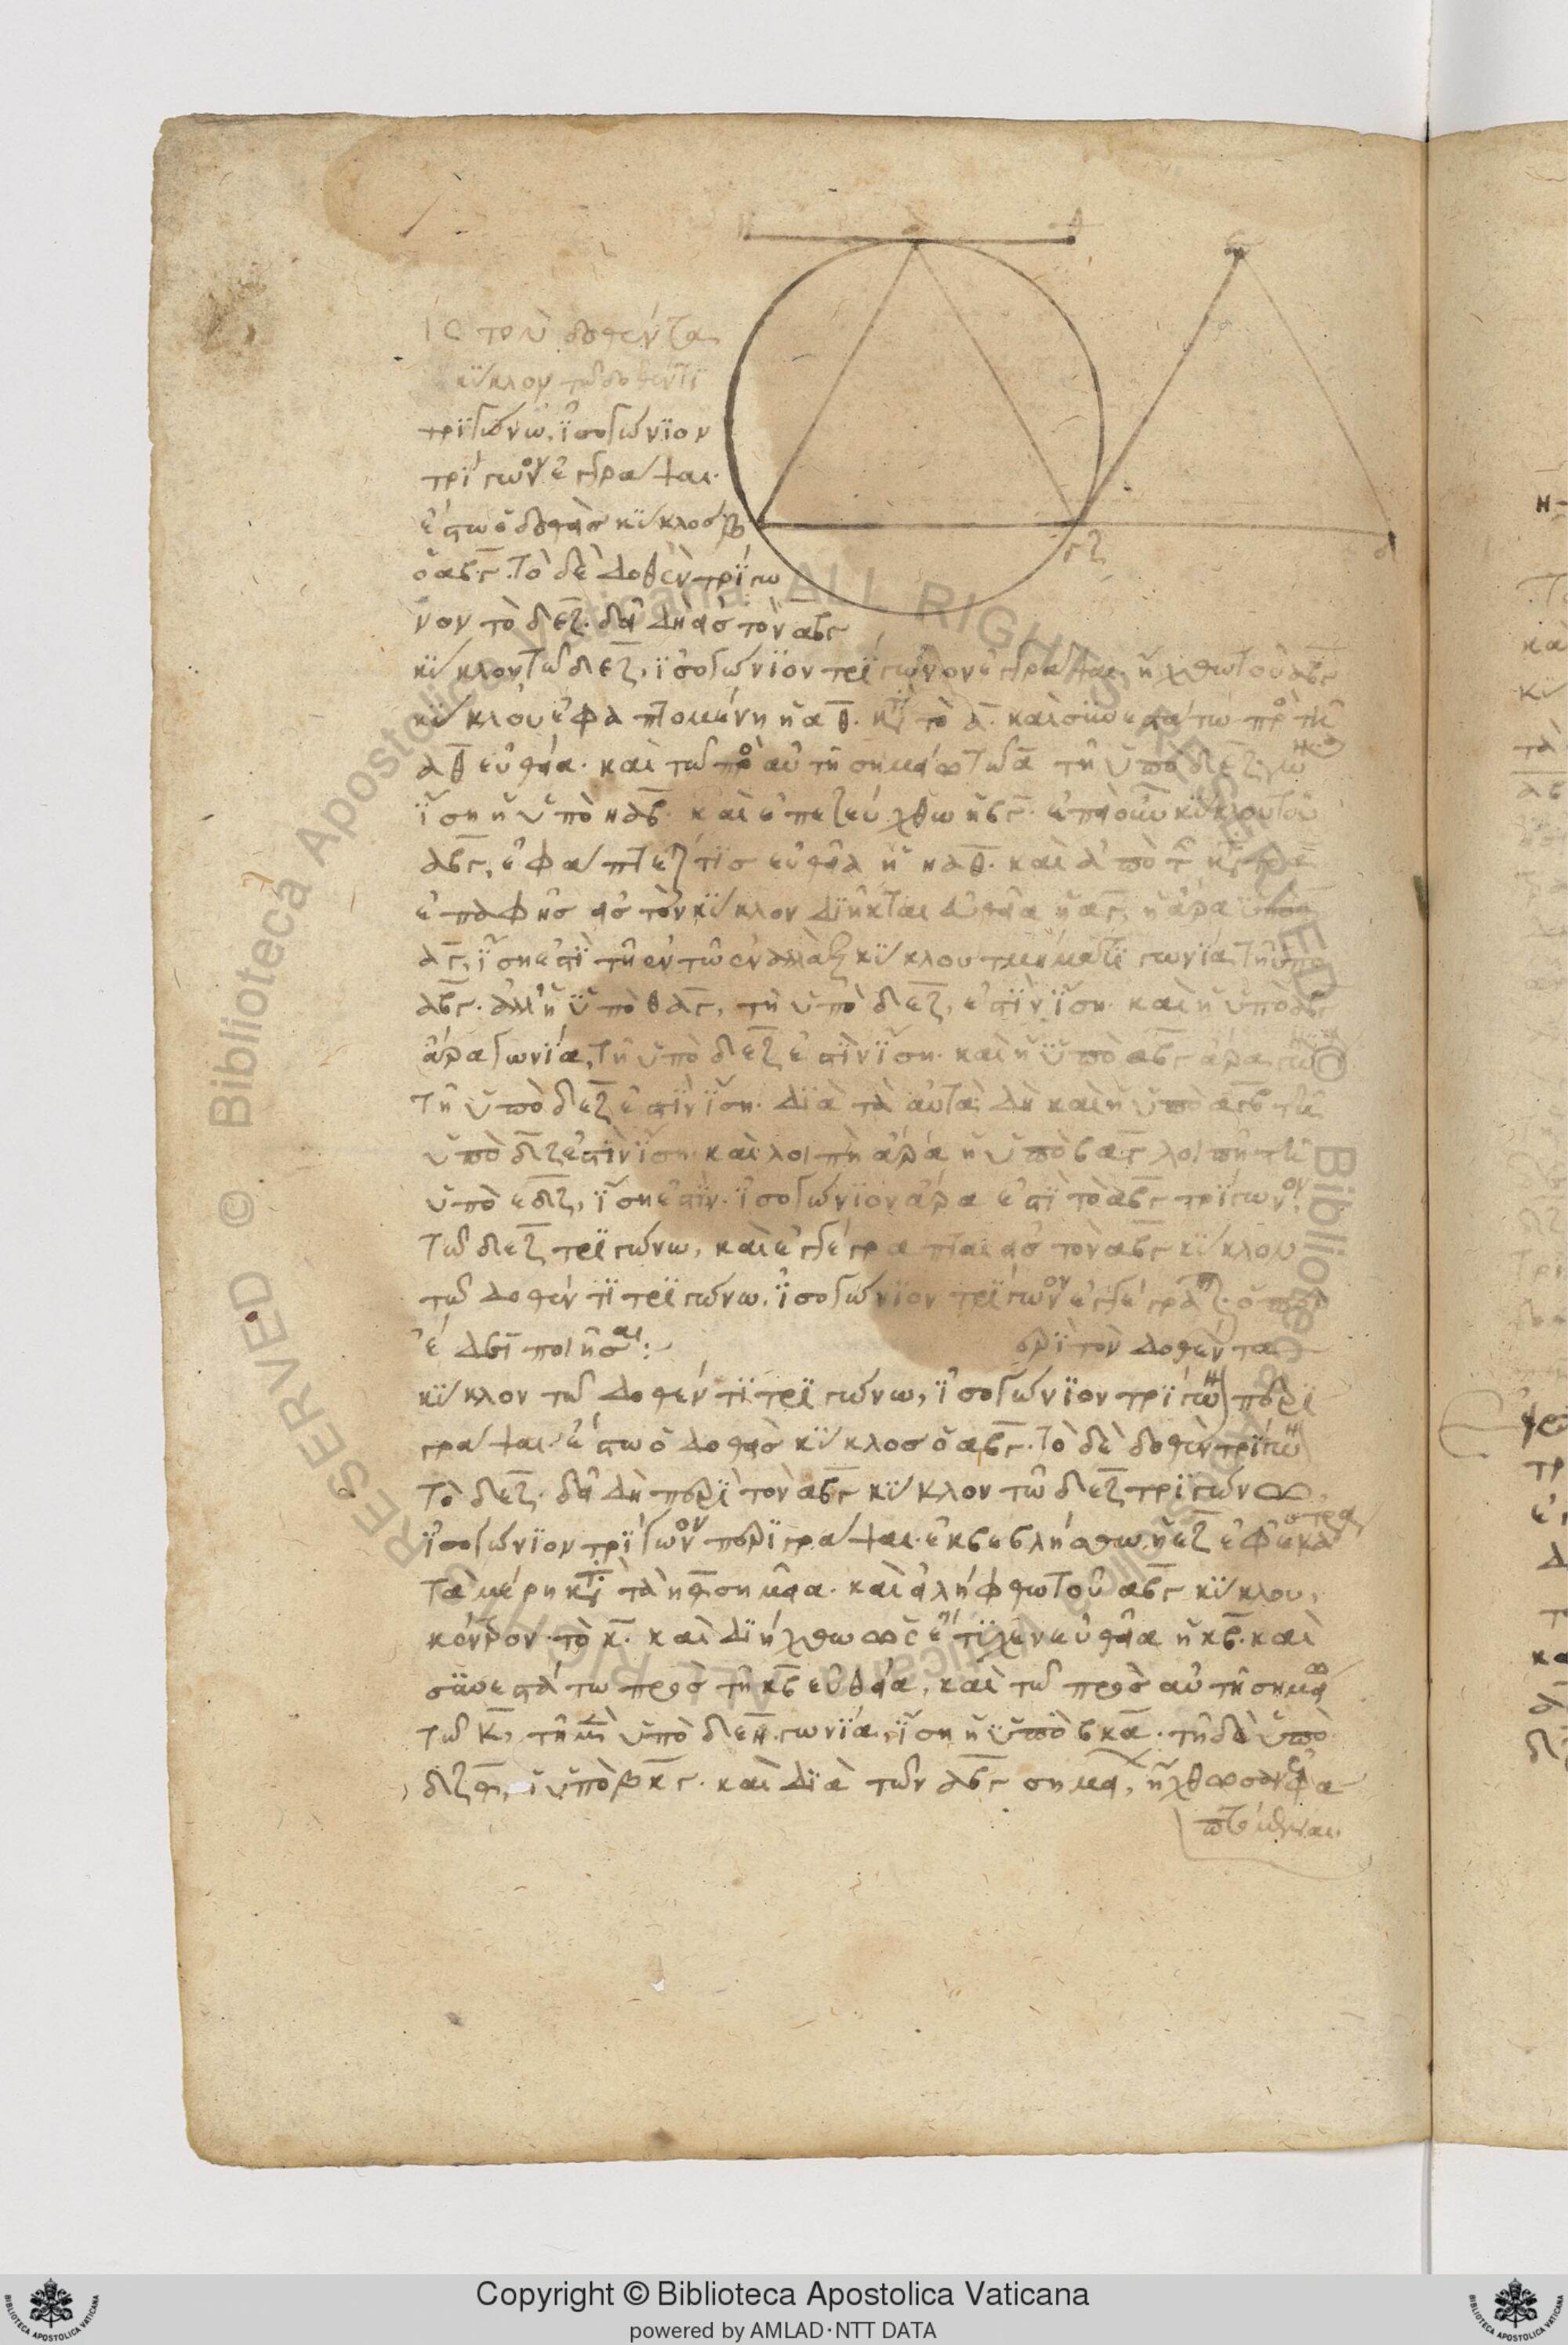 ις τὸν δοθέντα
κύκλον τῷ δοθέντι
τριγώνω, ἰσογώνιον
τρίγωνον ἐγγράψαι.
ἔστω ὁ δοθεὶς κύκλος
ὁ αβγ. τὸ δὲ δοθὲν τρίγω
νον τὸ δεζ. δεῖ δὴ εἰς τὸν αβγ
κύκλον τῶ δεζ, ἰσογώνιον τρίγωνον ἐγγράψαι. ἤχθω τοῦ αβγ
κύκλου ἐφαπτομένη ἡ αθ. κατὰ τὸ α. καὶ συνεστάτω πρὸς τῆ
αθ εὐθεία. καὶ τῶ πρὸς αὐτῆ σημείω τῶ α τῆ ὑπὸ δεζ γωνία
ἴση ἡ ὑπὸ
καὶ ἐπεζεύχθω ἡ βγ. ἐπεὶ οὖν κύκλου τοῦ
αβγ, ἐφάπτεταί τις εὐθεῖα ἡ ηαθ. καὶ ἀπὸ τῆς
ἐπαφῆς εἰς τὸν κύκλον διῆκται εὐθεῖα ἡ αγ, ἡ ἄρα ὑπὸ
αγ, ἴση ἐστὶ τῆ ἐν τῶ ἐναλλὰξ κύκλου τμήματι γωνία τῆ ὑπὸ
αβγ. ἀλλ' ἡ ὑπὸ θαγ, τῆ ὑπὸ δεζ, ἐστὶν ἴση. καὶ ἡ ὑπὸ αβγ
ἄρα γωνία, τῆ ὑπὸ δεζ ἐστὶν ἴση. καὶ ἡ ὑπὸ αβγ ἄρα γωνία
τῆ ὑπὸ δεζ ἐστὶν ἴση. διὰ τὰ αὐτὰ δὴ καὶ ἡ ὑπὸ αγβ τῆ
ὑπὸ δζε ἐστὶν ἴση. καὶ λοιπὴ ἄρα ἡ ὑπὸ βαγ λοιπῆ τῆ
ὑπὸ εδζ, ἴση ἐστίν. ἰσογώνιον ἄρα ἐστὶ τὸ αβγ τρίγωνον
τῶ δεζ τριγώνω, καὶ ἐγγέγραπται εἰς τὸν αβγ κύκλον
τῶ δοθέντι τριγώνω, ἰσογώνιον τρίγωνον ἐγγέγραπται. ὅπερ
ἔδει ποιῆσαι:
περὶ τὸν δοθέντα
κύκλον τῶ δοθέντι τριγώνω, ἰσογώνιον τρίγωνον περι
γράψαι. ἔστω ὁ δοθεὶς κύκλος ὁ αβγ. τὸ δὲ δοθὲν τρίγωνον
τὸ δεζ. δεῖ δὴ περὶ τὸν αβγ κύκλον τῶ δεζ τριγώνω
ἰσογώνιον τρίγωνον περιγράψαι. ἐκβεβλήσθω ἡ εζ ἐφ' ἑκάτερα
τὰ μέρη κατὰ τὰ ηθ σημεῖα. καὶ εἰλήφθω τοῦ αβγ κύκλου,
κέντρον τὸ κ. καὶ διήχθω ὡς ἔτυχεν εὐθεῖα ἡ κβ. καὶ
συνεστάτω πρὸς τῆ κβ εὐθεία, καὶ τῶ πρὸς αὐτῆ σημείω
τῶ κ, τῆ μὲν ὑπὸ δεη γωνία, ἴση ἡ ὑπὸ βκα. τῆ δὲ ὑπὸ
δζθ, ἡ ὑπὸ βκγ. καὶ διὰ τῶν αβγ σημείων, ἤχθωσαν ἐφα
πτόμεναι